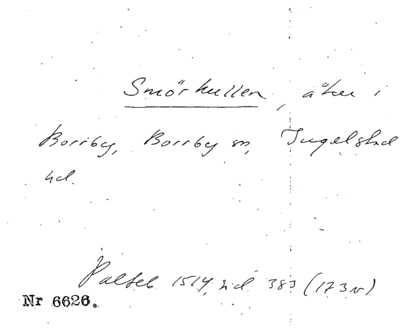 Smörkullen, åker i
Borrby, Borrby sn, Ingelstad
hd.
Palteb 1514, sid 383 (173v)
Nr 6626.